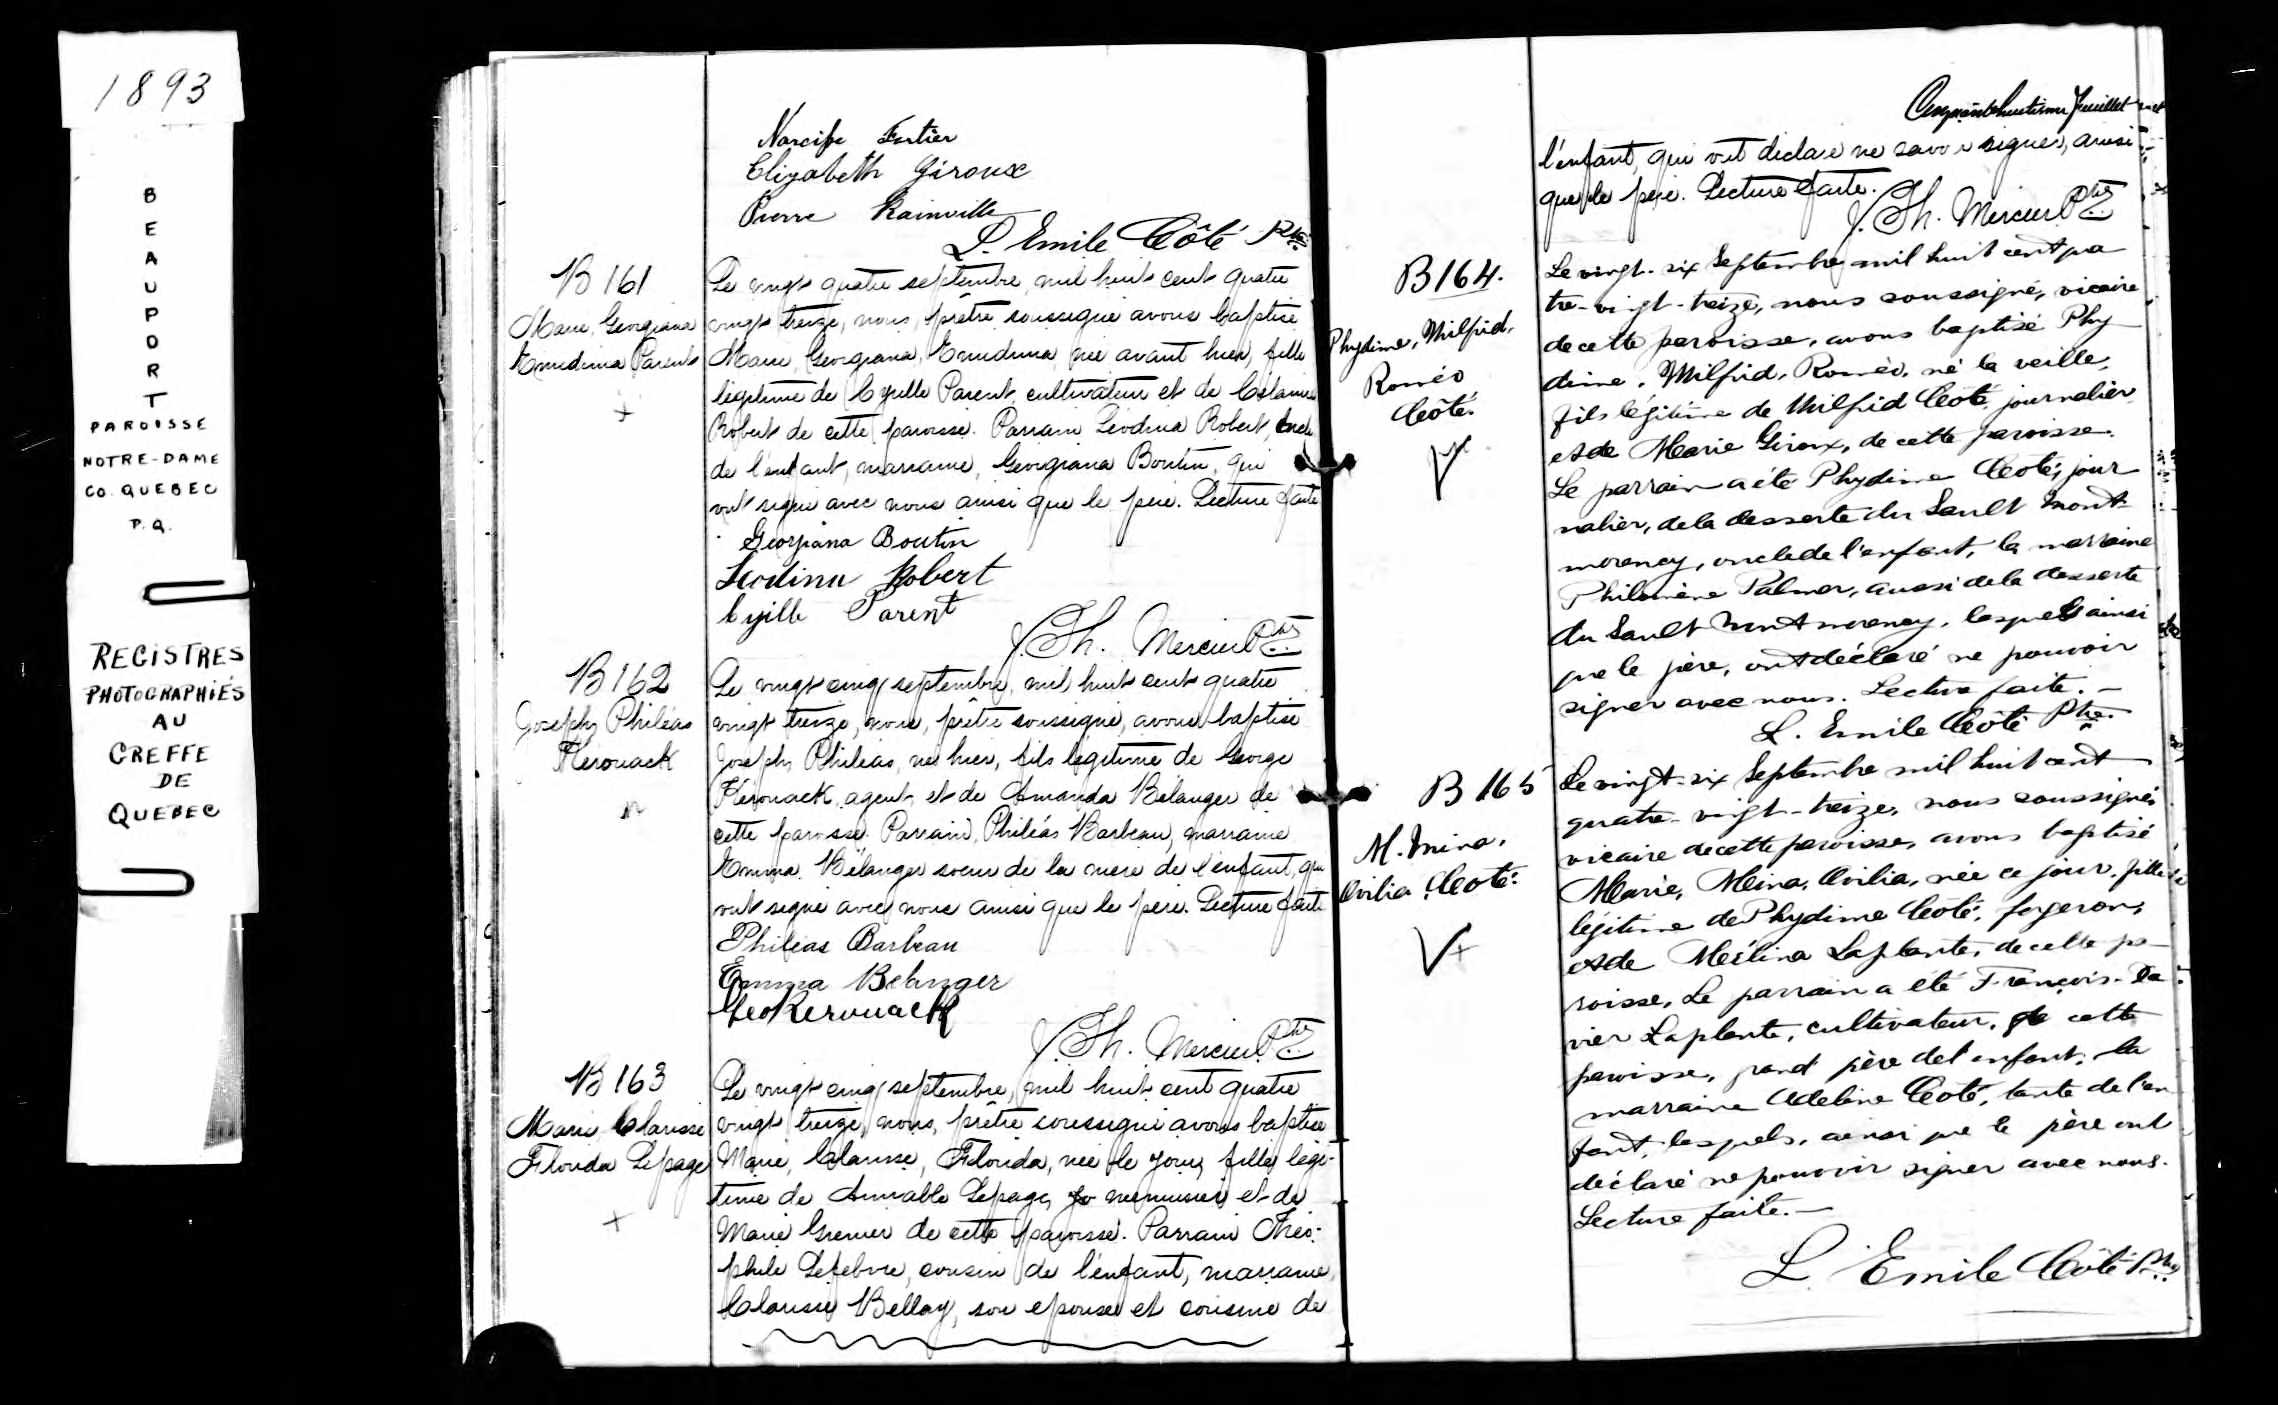 1893
BEAUPORT
PAROISSE
NOTRE-DAME
CO. QUEBEC
P.Q.
REGISTRES
PHOTOGRAPHIÉS
AU
GREFFE
DE
QUEBEC
Narcisse Fortier
Elizabeth Giroux
Pierre Rainville
L. Emile Côté Ptre
B 161
Marie, Georgiana
Emedina Parent
Le vingt quatre septembre, mil huit cent quatre
vingt treize, nous, prêtre soussigné avons baptisé
Marie, Georgiana, Emedina, née avant hier, fille
légitime de Cyrille Parent, cultivateur et de
Robert de cette paroisse. Parrain Léodina Robert, oncle
de l'enfant, marraine, Georgiana Boutin, qui
ont signé avec nous ainsi que le père. Lecture faite
Georgiana Boutin
Leodina Robert
Cyille Parent
J. Th. Mercier Ptre
B 162
Joseph, Philéas
Kerouack
Le vingt cinq septembre, mil huit cent quatre
vingt treize, nous, prêtre soussigné, avons baptisé
Joseph, Philéas, né hier, fils légitime de George
Kérouack, agent, et de Amanda Bélanger de
cette paroisse. Parrain, Philéas Barbeau, marraine
Emma Bélanger soeur de la mère de l'enfant, qui
ont signé avec nous ainsi que le père. Lecture faite
Philéas Barbeau
Emma Belanger
Geo Kerouack
J. Th. Mercier Ptre
B 163
Marie, Clarisse
Florida Lepage
Le vingt cinq septembre, mil huit cent quatre
vingt treize, nous, prêtre soussigné avons baptisé
Marie, Clarisse, Florida, née le jour, fille légi-
time de Aimable Lepage, menuisier et de
Marie Grenier de cette paroisse. Parrain Théo-
phile Lefebvre, cousin de l'enfant, marraine,
Clarisse Bellay, son epouse et cousine de
Cinquante huitième feuillet
l'enfant, qui ont déclaré ne savoir signer, ainsi
que le père. Lecture faite.
J. Th. Mercier Ptre
B 164.
Phydime, Wilfrid,
Roméo
Côté.
Le vingt-six Septembre mil huit cent qua
tre-vingt-treize, nous soussigné, vicaire
de cette paroisse, avons baptisé Phy
dime, Wilfrid, Roméo, né la veille,
fils légitime de Wilfrid Côté, journalier
et de Marie Giroux, de cette paroisse.
Le parrain a été Phydime Côté, jour
nalier, de la desserte du Sault Mont-
morency, oncle de l'enfant, la marraine
Philomène Palmer, aussi de la desserte
du Sault Montmorency, lesquels ainsi
que le père, ont déclaré ne pouvoir
signer avec nous. Lecture faite.—
L. Emile Côté Ptre.
B 165
M. Mina,
Ovilia Côté.
Le vingt-six Septembre mil huit cent
quatre-vingt-treize, nous soussigné,
vicaire de cette paroisse, avons baptisé
Marie, Meina, Ovilia, née ce jour, fille
légitime de Phydime Côté, forgeron,
et de Mélina Laplante, de cette pa-
roisse. Le parrain a été François-Xa
vier Laplante, cultivateur, de cette
paroisse, grand père de l'enfant, la
marraine Adeline Côté, tante de l'en
fant, lesquels, ainsi que le père ont
déclaré ne pouvoir signer avec nous.
Lecture faite.—
L. Emile Côté Ptre